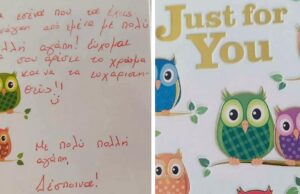 εσένα που τα έχεις
από εμένα με πολύ
πολλή αγάπη! Εύχομαι
να σου αρέσει το χρώμα
και να τα ευχαριστη-
θείς!
Με πολύ πολλή
αγάπη,
Δέσποινα!
Just for
You